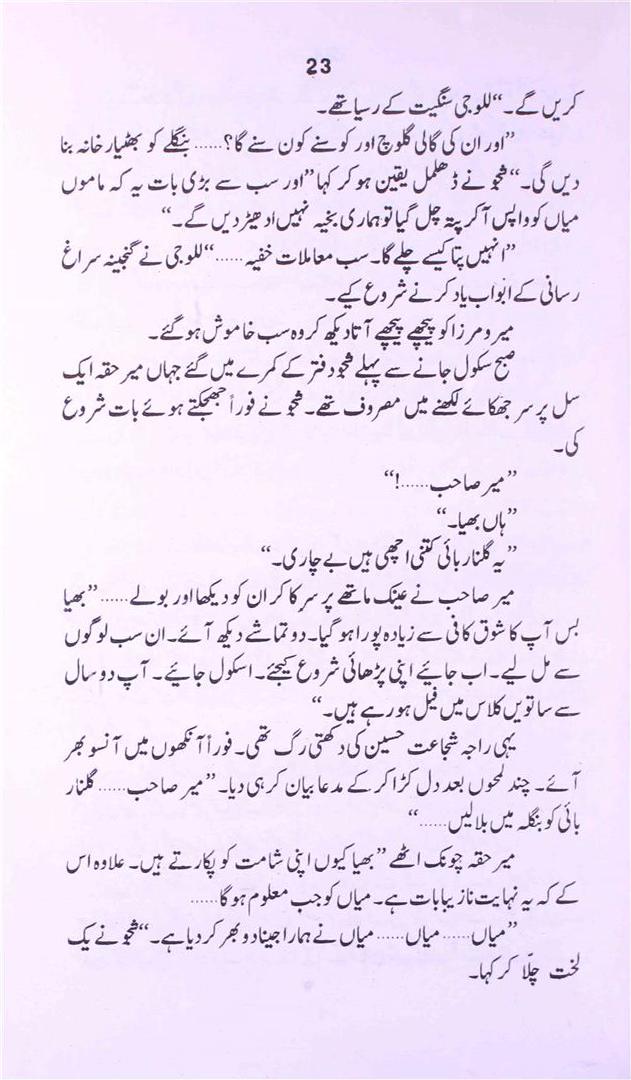 23
کریں گے۔“ للوجی سنگیت کے رسیا تھے۔
”اور ان کی گالی گلوچ اور کوسنے کون سنے گا؟...... بنگلے کو بھٹیار خانہ بنا
دیں گی۔“ شجو نے ڈھلمل یقین ہو کر کہا ”اور سب سے بڑی بات یہ کہ ماموں
میاں کو واپس آ کر پتہ چل گیا تو ہماری بخیہ نہیں ادھیڑ دیں گے۔“
”انہیں پتا کیسے چلے گا۔ سب معاملات خفیہ......“ للوجی نے گنجینہ سراغ
رسانی کے ابواب یاد کرنے شروع کیے۔
میر و مرزا کو پیچھے پیچھے آتا دیکھ کر وہ سب خاموش ہو گئے۔
صبح سکول جانے سے پہلے شجو دفتر کے کمرے میں گئے جہاں میر حقہ ایک
سل پر سر جھکائے لکھنے میں مصروف تھے۔ شجو نے فوراً جھجکتے ہوئے بات شروع
کی۔
”میر صاحب......!“
”ہاں بھیا۔“
”یہ گلنار بائی کتنی اچھی ہیں بے چاری۔“
میر صاحب نے عینک ماتھے پر سرکا کر ان کو دیکھا اور بولے...... ”بھیا
بس آپ کا شوق کافی سے زیادہ پورا ہو گیا۔ دو تماشے دیکھ آئے۔ ان سب لوگوں
سے مل لیے۔ اب جائیے اپنی پڑھائی شروع کیجئے۔ اسکول جائیے۔ آپ دو سال
سے ساتویں کلاس میں فیل ہو رہے ہیں۔“
یہی راجہ شجاعت حسین کی دکھتی رگ تھی۔ فوراً آنکھوں میں آنسو بھر
آئے۔ چند لمحوں بعد دل کڑا کر کے مدعا بیان کر ہی دیا۔ ”میر صاحب...... گلنار
بائی کو بنگلہ میں بلا لیں......“
میر حقہ چونک اٹھے ”بھیا کیوں اپنی شامت کو پکارتے ہیں۔ علاوہ اس
کے کہ یہ نہایت نازیبا بات ہے۔ میاں کو جب معلوم ہو گا......
”میاں...... میاں...... میاں نے ہمارا جینا دوبھر کر دیا ہے۔“ شجو نے یک
لخت چلّا کر کہا۔